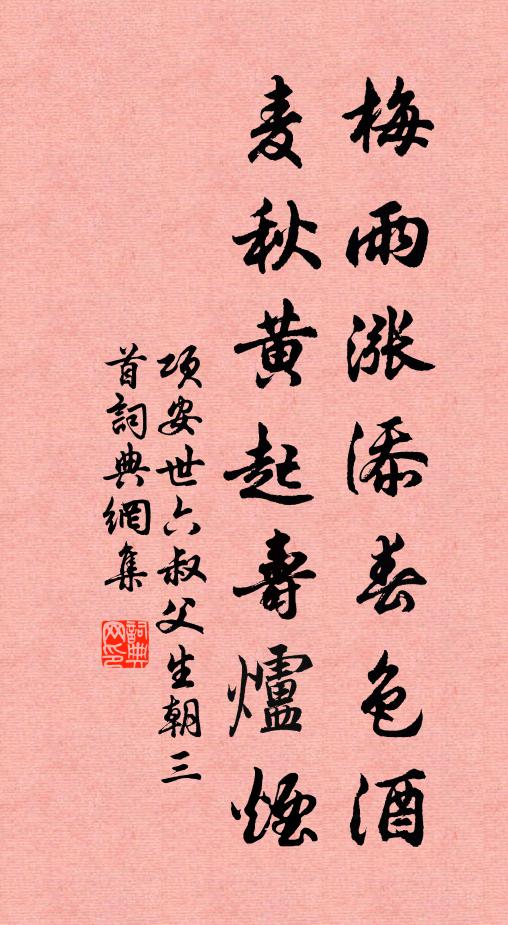 梅雨漲添春色酒
麦秋黄起壽爐煙
項安世六叔父生朝三
首詞典網集
詞典
网印